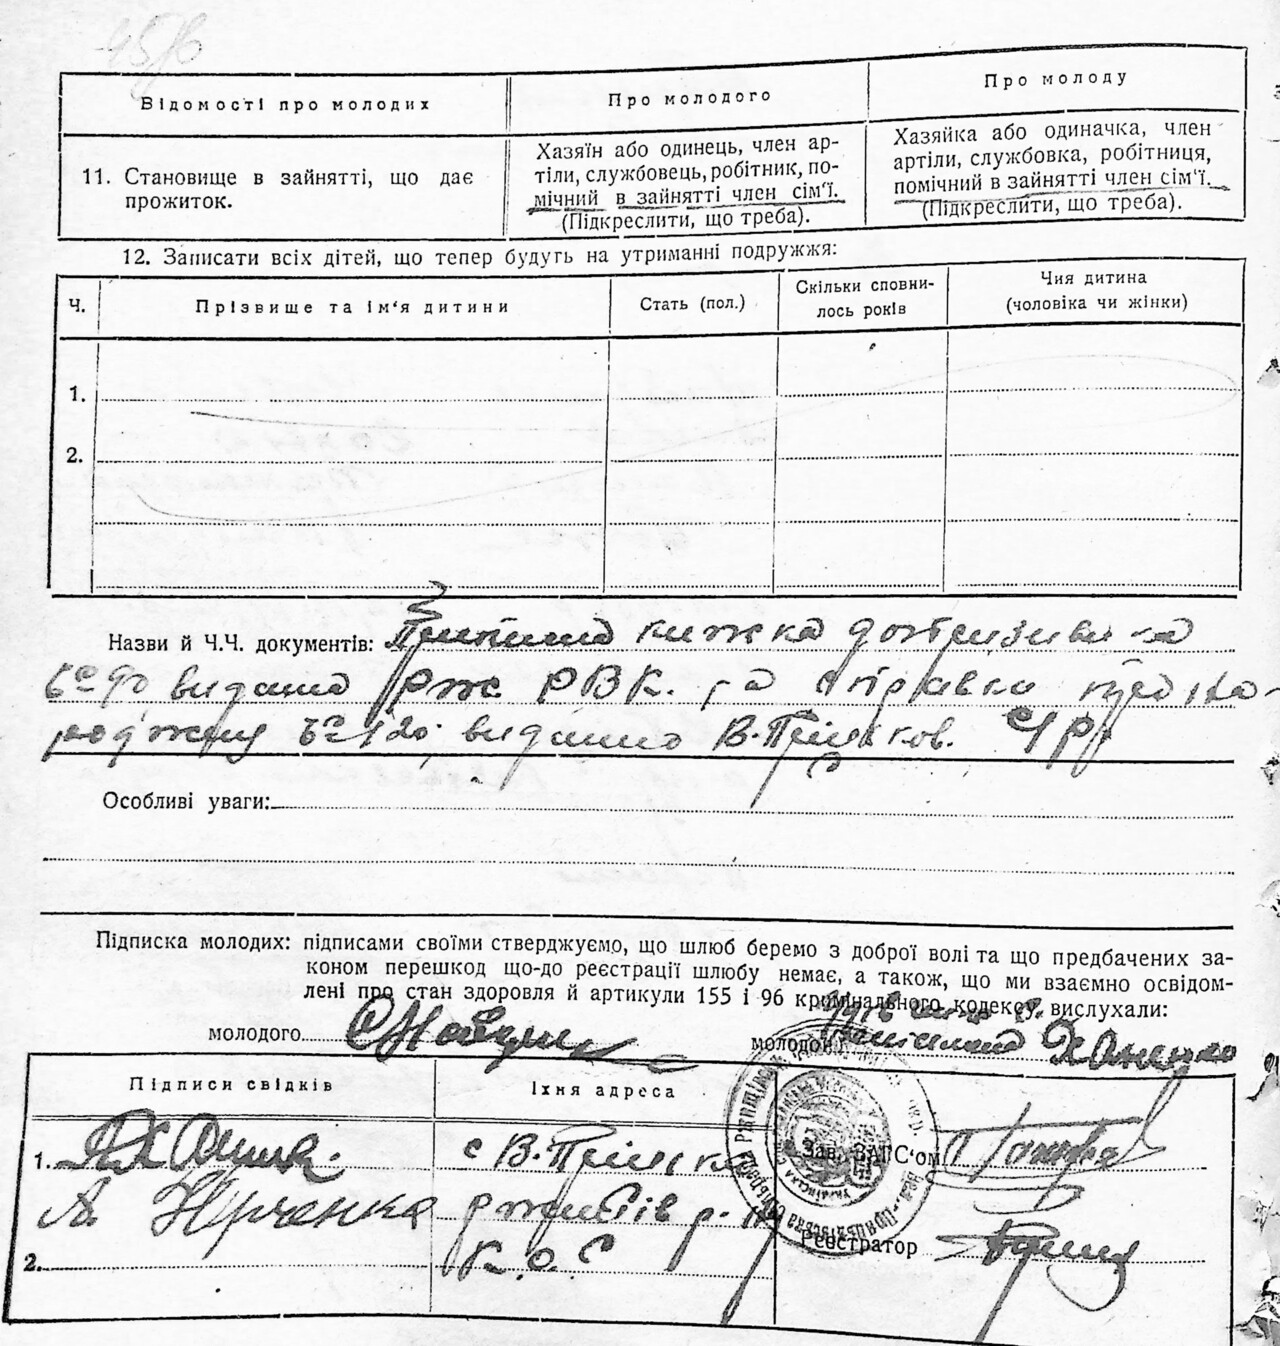 Відомості про молодих
Про молодого
Про молоду
11. Становище в зайнятті, що дає
прожиток.
Хазяїн або одинець, член ар-
тіли, службовець, робітник, по-
мічний в зайнятті член сім'ї.
(Підкреслити, що треба).
Хазяйка або одиначка, член
артіли, службовка, робітниця,
помічний в зайнятті член сім'ї.
(Підкреслити, що треба).
12. Записати всіх дітей, що тепер будуть на утриманні подружжя:
Ч.
Прізвище та ім'я дитини
Стать (пол.)
Скільки сповни-
лось років
Чия дитина
(чоловіка чи жінки)
1.
2.
Назви й Ч.Ч. документів: Приписна книжка допризивника
видана Рж. РВК. та справка про на-
родження видана В.-Пруцков.
Особливі уваги:
Підписка молодих: підписами своїми стверджуємо, що шлюб беремо з доброї волі та що предбачених за-
коном перешкод що-до реєстрації шлюбу немає, а також, що ми взаємно освідом-
лені про стан здоровля й артикули 155 і 96 кримінального кодексу, вислухали:
молодого
молодої
Ханенко
Підписи свідків
Їхня адреса
1.
с В-Пруцки
А. Юрченко
Ржищів р-н
2.
К. О.
Зав. ЗАГС'ом
Реєстратор